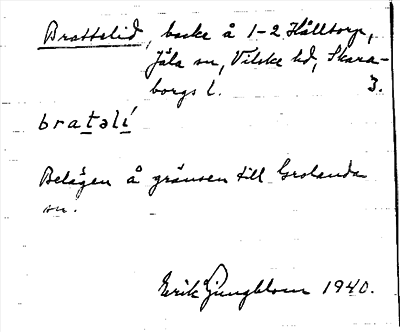 Brattalid, backe å 1-2 Hålltorp,
Jäla sn, Vilske hd, Skara-
borgs l. 3.
bratalí
Belägen å gränsen till Grolanda
sn.
Erik Ljungblom 1940.